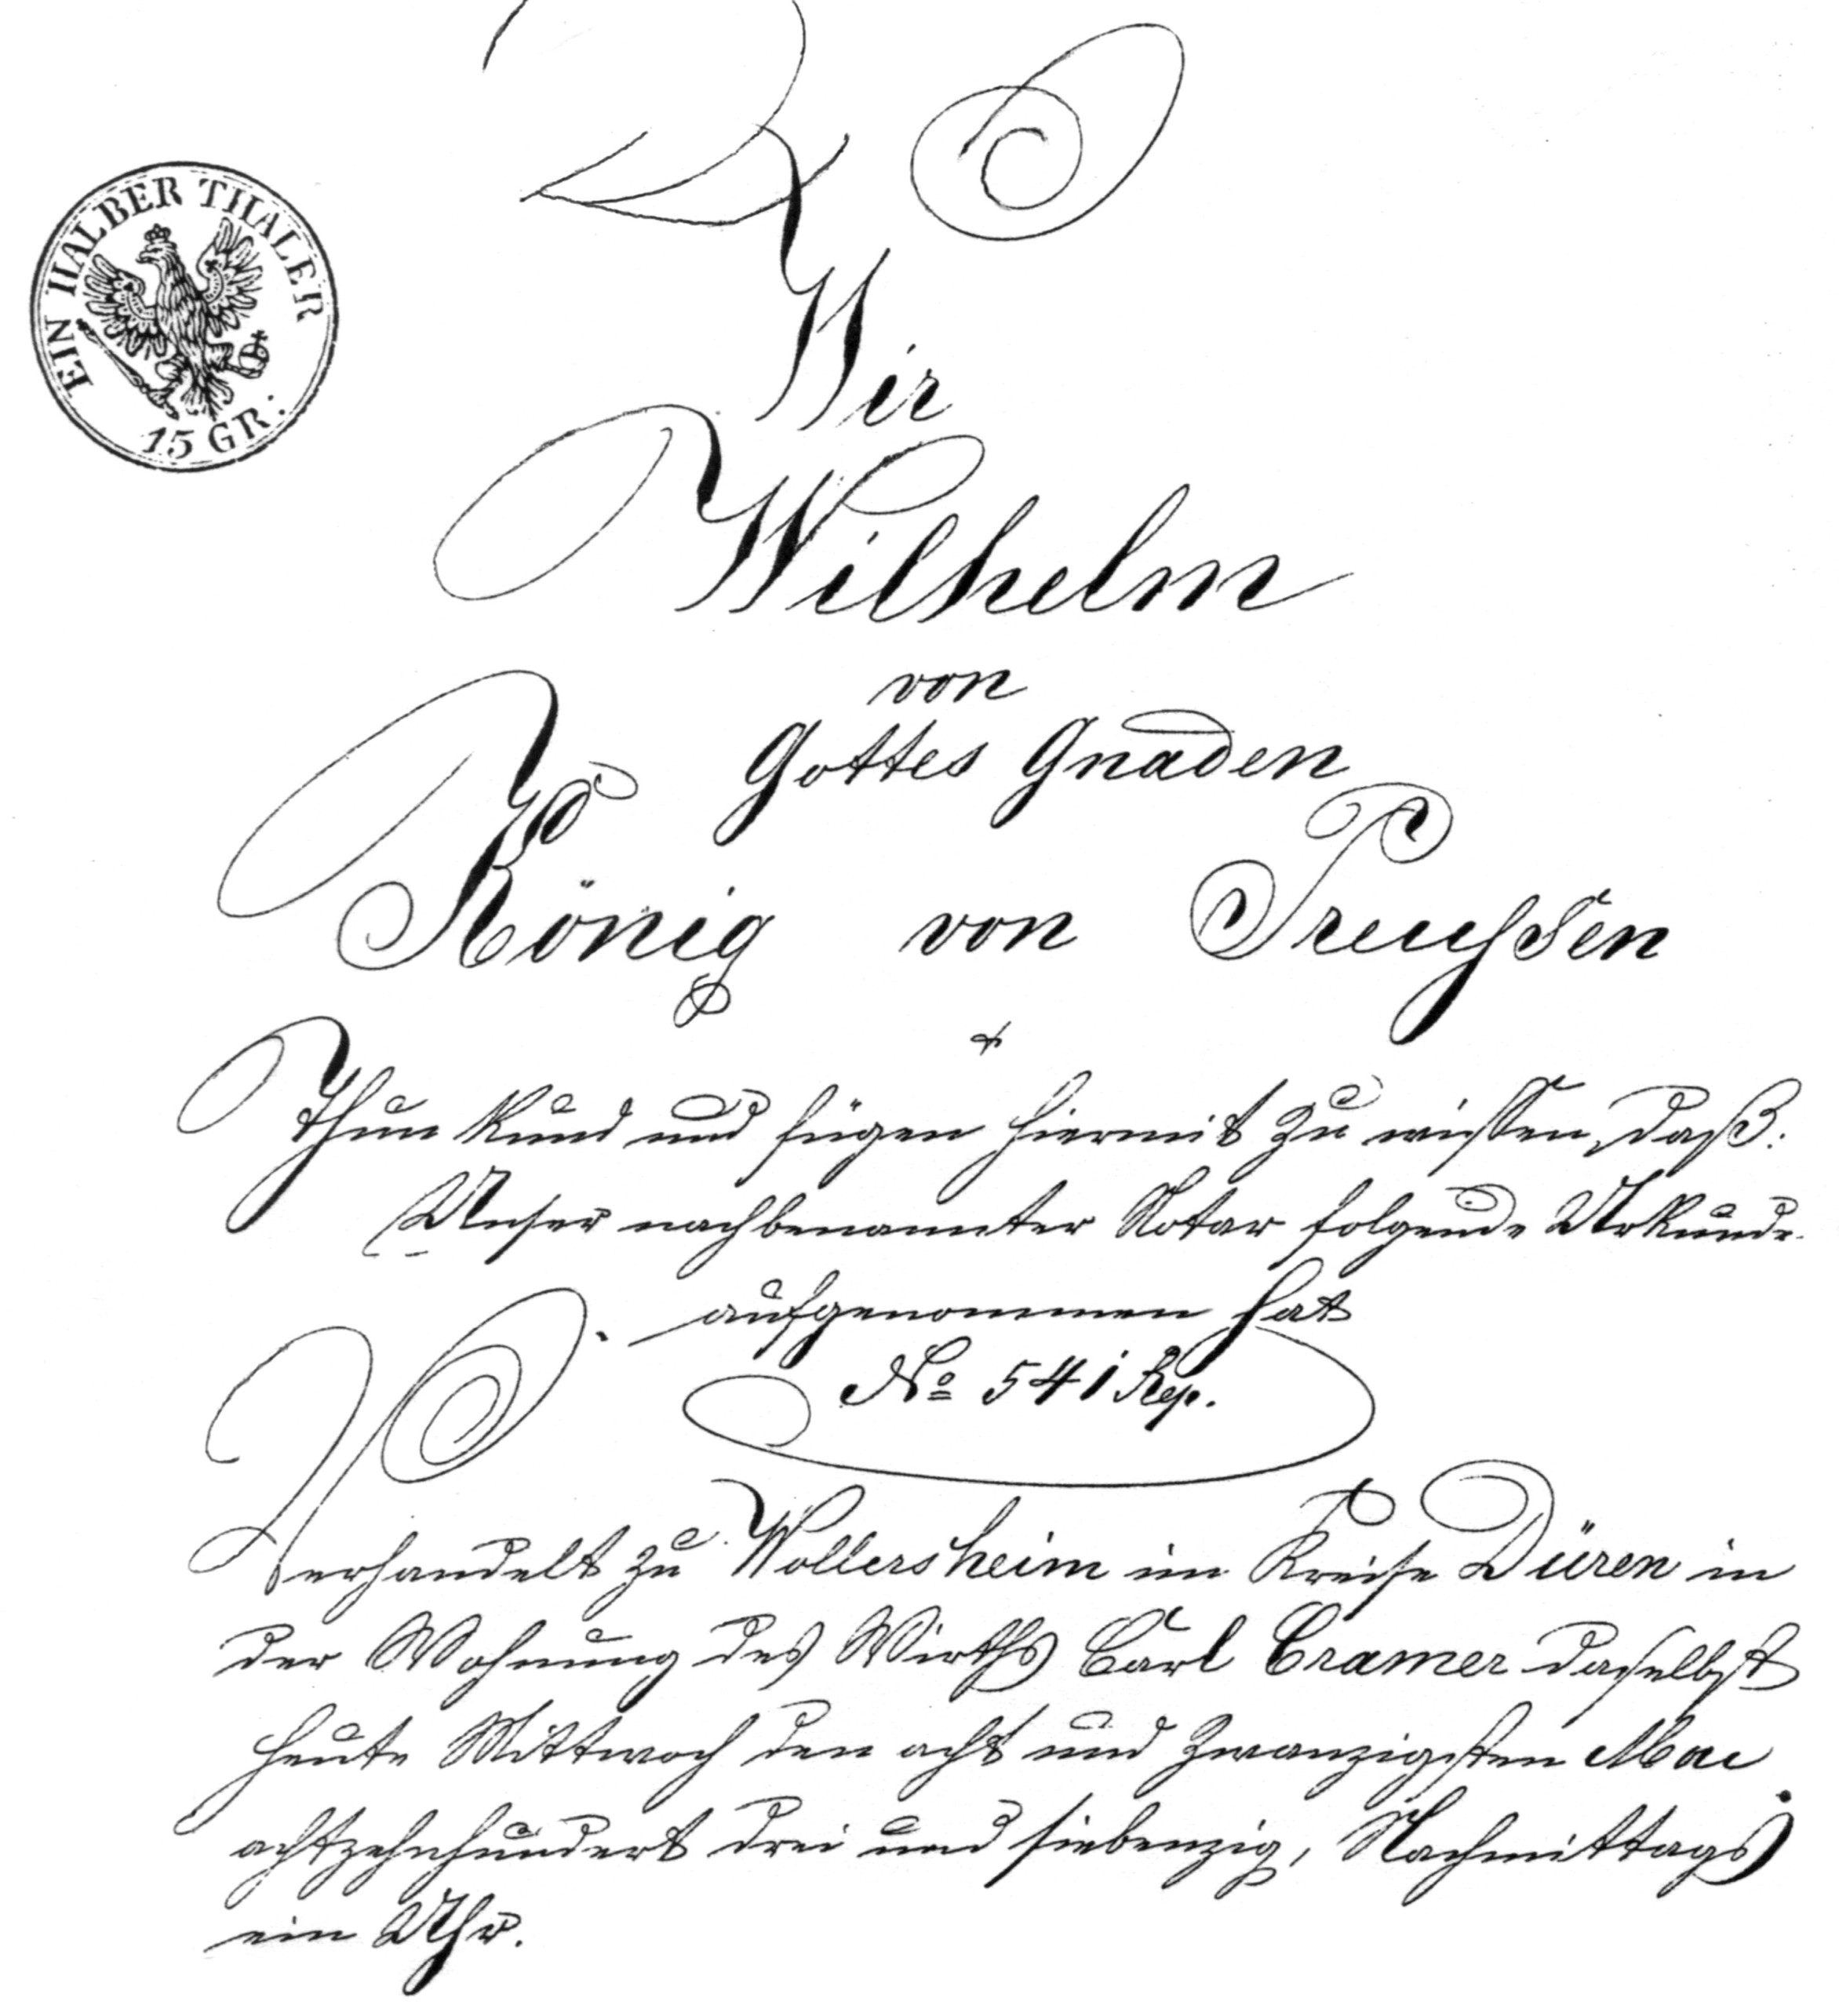 EIN HALBER THALER
15 GR.
Wir
Wilhelm
von
Gottes Gnaden
König von Preußen
Thun kund und fügen hiermit zu wissen, daß:
Unser nachbenannter Notar folgende Urkunde
aufgenommen hat
No 541 Rep.
Verhandelt zu Wollersheim im Kreise Düren in
der Wohnung des Wirths Carl Cramer daselbst
heute Mittwoch den acht und zwanzigsten Mai
achtzehnhundert drei und siebenzig, Nachmittags
ein Uhr.